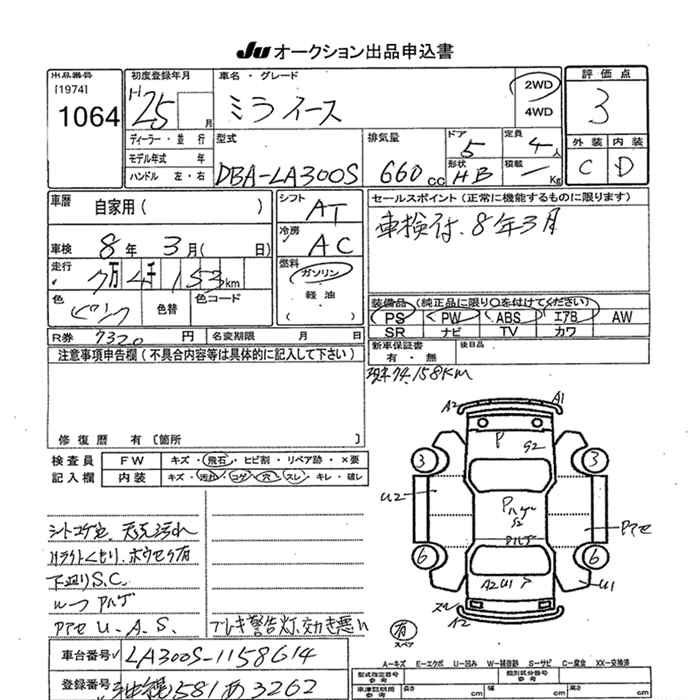 JU オークション出品申込書
出品番号
[1974]
1064
初度登録年月
H25 月
車名・グレード
ミラ イース
2WD
4WD
評価点
3
ディーラー・並行
モデル年式 年
ハンドル 左・右
型式
DBA-LA300S
排気量
660 cc
ドア
5
形状
HB
定員
4人
積載
― Kg
外装 内装
C D
車歴
自家用( )
シフト
AT
セールスポイント(正常に機能するものに限ります)
車検付. 8年3月
車検 8年 3月( 日)
冷房
AC
走行
7万 4千 153 km
燃料
ガソリン
軽油
( )
色
ピンク
色替
色コード
装備品(純正品に限り○を付けてください)
PS PW ABS エアB AW
SR ナビ TV カワ
R券 7320 円
名変期限 月 日
新車保証書
有・無
後日品
注意事項申告欄(不具合内容等は具体的に記入して下さい)
現未74,158KM
修復歴 有〔箇所 〕
検査員
記入欄
FW キズ・飛石・ヒビ割・リペア跡・×要
内装 キズ・汚れ・コゲ・穴・スレ・キレ・破レ
A2 A1
P G2
3 3
U2
Pハゲ
S2
Pアセ
Pハゲ
6 6
A2 U1 P
U1
スレ
A2
有
スペア
シートコゲ穴. 天先汚れ
Hライトくもり. ホウセキ有
下廻りS.C.
ルーフ Pハゲ
Pアセ U.A.S.
ブレーキ警告灯、効き悪い
A-キズ E-エクボ U-凹み W-補修跡 S-サビ C-腐食 XX-交換済
車台番号 LA300S-1158614
登録番号 沖縄581あ3262
型式指定番号
参考
類別区分番号
参考
車検証明期
参考
長さ cm
幅 cm
高さ cm